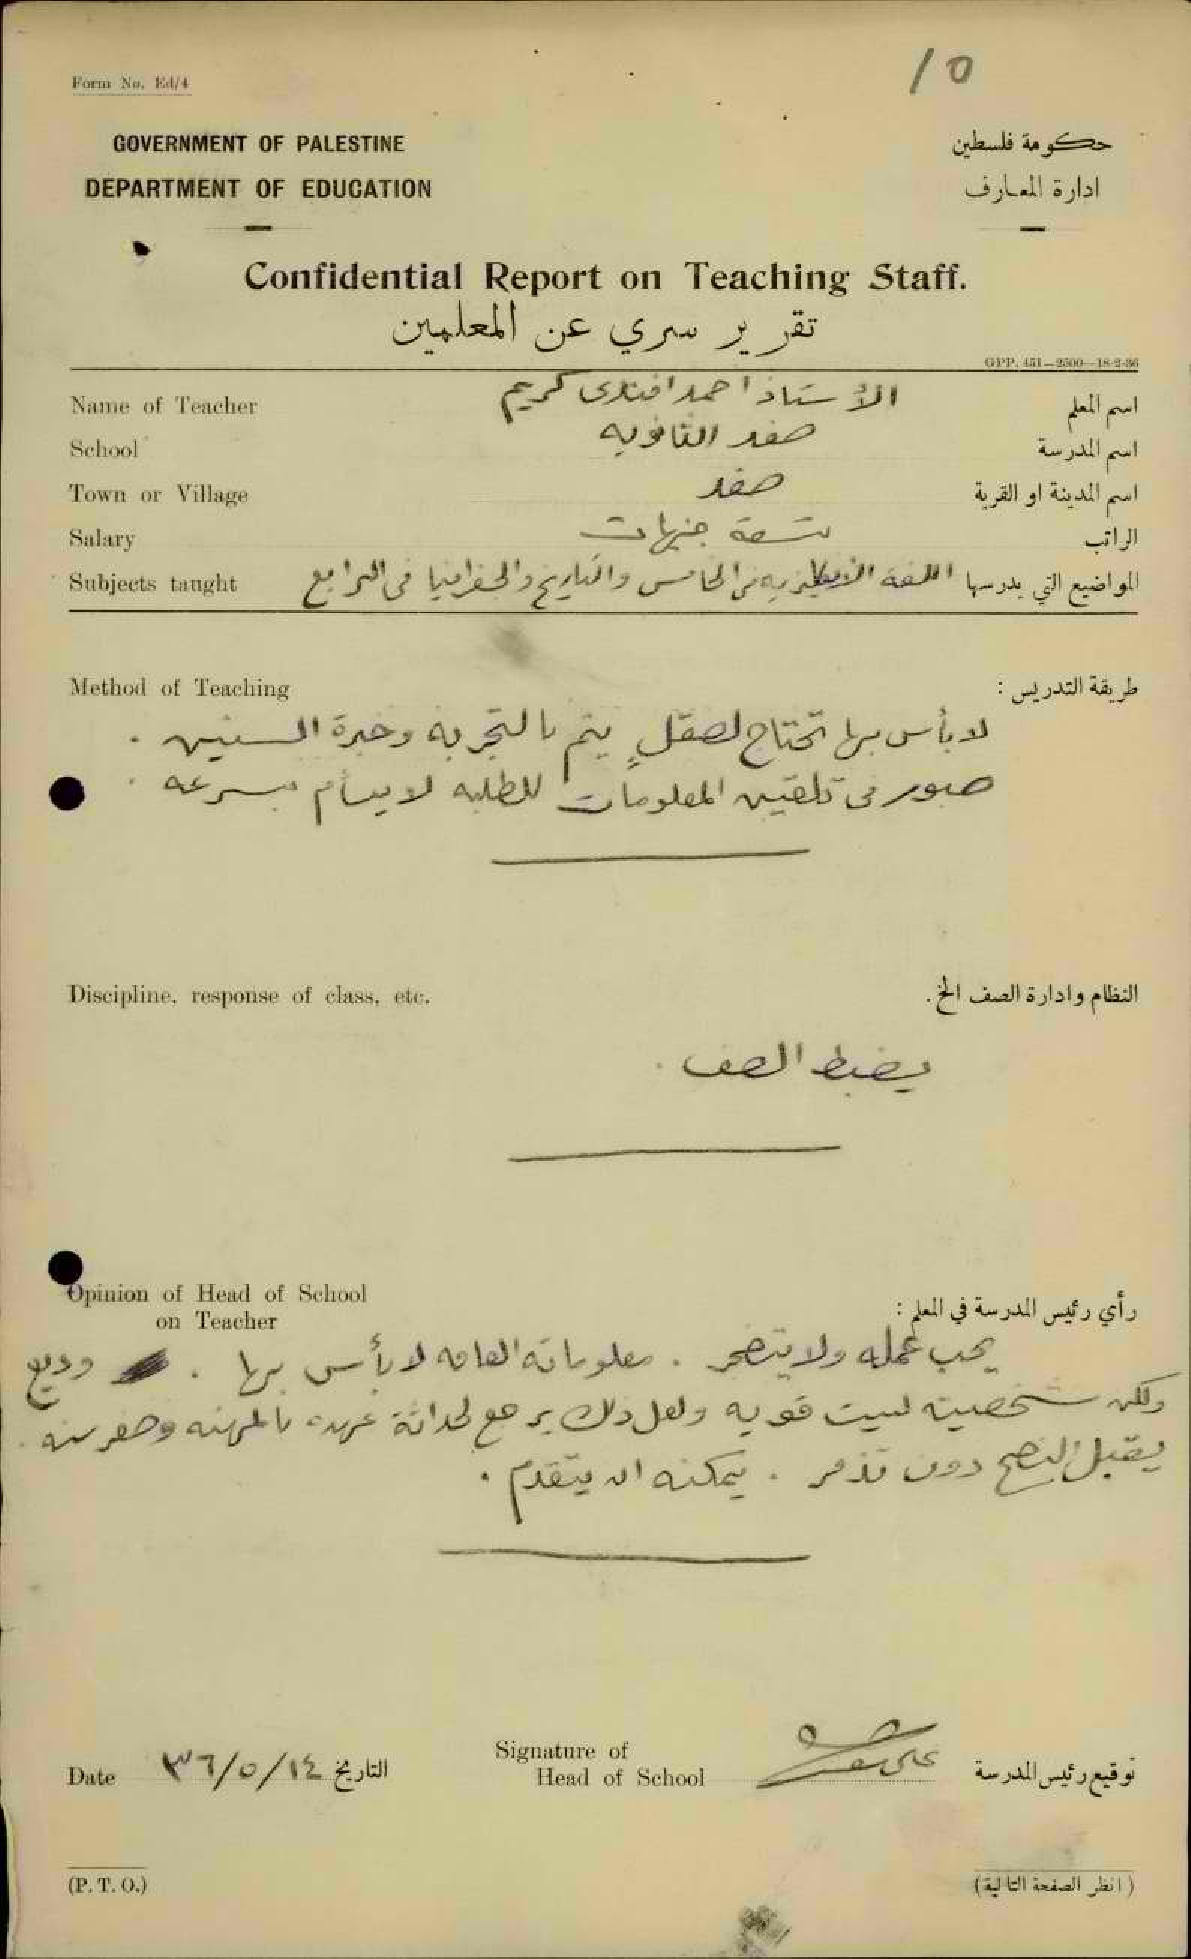 10
Form No. Ed/4
GOVERNMENT OF PALESTINE
حكومة فلسطين
DEPARTMENT OF EDUCATION
ادارة المعارف
Confidential Report on Teaching Staff.
تقرير سري عن المعلمين
GPP. 451—2500—18-2-36
Name of Teacher الأستاذ احمد افندى كريم اسم المعلم
School صفد الثانويه اسم المدرسة
Town or Village صفد اسم المدينة او القرية
Salary تسعة جنيهات الراتب
Subjects taught اللغة الانكليزيه في الخامس والتاريخ والجغرافيا في الرابع المواضيع التي يدرسها
Method of Teaching طريقة التدريس :
لا بأس بها تحتاج لصقلٍ يتم بالتجربه وخبرة السنين .
صبور في تلقين المعلومات للطلبه لا يسأم بسرعه .
Discipline, response of class, etc. النظام وادارة الصف الخ.
يضبط الصف .
Opinion of Head of School
on Teacher
رأي رئيس المدرسة في المعلم :
يحب عمله ولا يتضجر . معلوماته العامه لا بأس بها . وديع
ولكن شخصيته ليست قويه ولعل ذلك يرجع لحداثة عهده بالمهنه وصغر سنه .
يقبل النصح دون تذمر . يمكنه ان يتقدم .
Date ٣٦/٥/١٤ التاريخ
Signature of
Head of School
توقيع رئيس المدرسة
(P. T. O.)
(انظر الصفحة التالية)